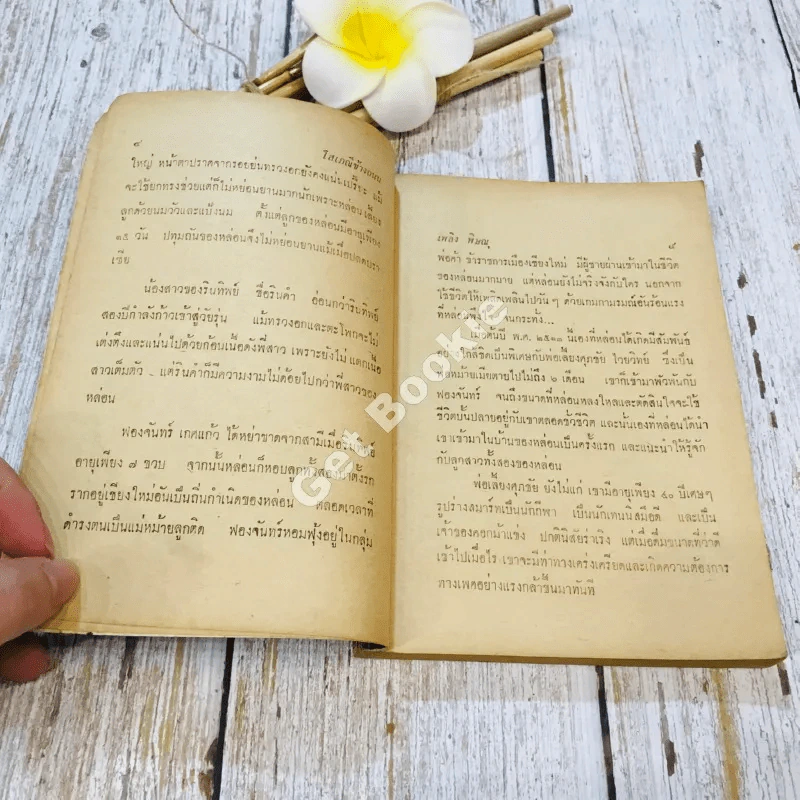 ๘
โสเภณีข้างถนน
ใหญ่ หน้าตาปราศจากรอยย่นทรวงอกยังคงแน่นเปรี๊ยะ แม้
จะใช้ยกทรงช่วยแต่ก็ไม่หย่อนยานมากนักเพราะหล่อนเลี้ยง
ลูกด้วยนมวัวและแป้งนม ตั้งแต่ลูกของหล่อนมีอายุเพียง
๑๕ วัน ปทุมถันของหล่อนจึงไม่หย่อนยานแม้เมื่อปลดบรา
เซีย
น้องสาวของรินทิพย์ ชื่อรินคำ อ่อนกว่ารินทิพย์
สองปีกำลังก้าวเข้าสู่วัยรุ่น แม้ทรวงอกและตะโพกจะไม่
เต่งตึงและแน่นไปด้วยก้อนเนื้อดังพี่สาว เพราะยังไม่แตกเนื้อ
สาวเต็มตัว แต่รินคำก็มีความงามไม่ด้อยไปกว่าพี่สาวของ
หล่อน
ฟองจันทร์ เกศแก้ว ได้หย่าขาดจากสามีเมื่อรินทิพย์
อายุเพียง ๗ ขวบ จากนั้นหล่อนก็หอบลูกทั้งสองมาตั้งรก
รากอยู่เชียงใหม่อันเป็นถิ่นกำเนิดของหล่อน ตลอดเวลาที่
ดำรงตนเป็นแม่หม้ายลูกติด ฟองจันทร์หอมฟุ้งอยู่ในกลุ่ม
เพลิง พิษณุ
๙
พ่อค้า ข้าราชการเมืองเชียงใหม่ มีผู้ชายผ่านเข้ามาในชีวิต
ของหล่อนมากมาย แต่หล่อนยังไม่จริงจังกับใคร นอกจาก
ใช้ชีวิตให้เพลิดเพลินไปวัน ๆ ด้วยเกมกามรมณ์อันร้อนแรง
ที่หล่อนพึงใจ จนกระทั่ง...
เมื่อต้นปี พ.ศ. ๒๕๑๓ นี้เองที่หล่อนได้เกิดมีสัมพันธ์
ใกล้ชิดเป็นพิเศษกับพ่อเลี้ยงศุภชัย ไวยวิทย์ ซึ่งเป็น
พ่อหม้ายเมียตายไปไม่ถึง ๖ เดือน เขาก็เข้ามาพัวพันกับ
ฟองจันทร์ จนถึงขนาดที่หล่อนหลงใหลและตัดสินใจจะใช้
ชีวิตบั้นปลายอยู่กับเขาตลอดชั่วชีวิต และนั่นเองที่หล่อนได้นำ
เขาเข้ามาในบ้านของหล่อนเป็นครั้งแรก และแนะนำให้รู้จัก
กับลูกสาวทั้งสองของหล่อน
พ่อเลี้ยงศุภชัย ยังไม่แก่ เขามีอายุเพียง ๔๐ ปีเศษๆ
รูปร่างสมาร์ทเป็นนักกีฬา เป็นนักเทนนิสมือดี และเป็น
เจ้าของคอกม้าแข่ง ปกตินิสัยร่าเริง แต่เมื่อดื่มขนาดที่ว่าดี
เข้าไปเมื่อไร เขาจะมีท่าทางเคร่งเครียดและเกิดความต้องการ
ทางเพศอย่างแรงกล้าขึ้นมาทันที
Get Bookie